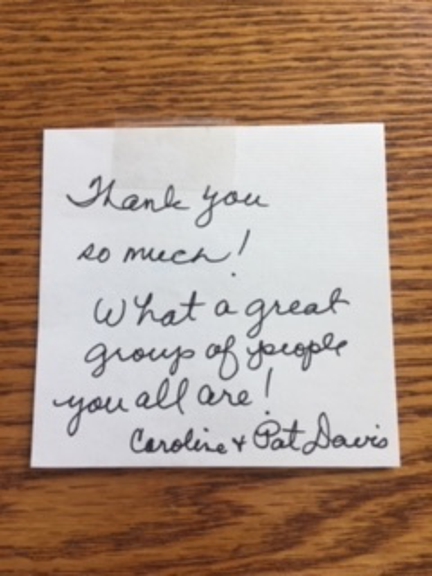 Thank you
so much!
What a great
group of people
you all are!
Caroline + Pat Davis